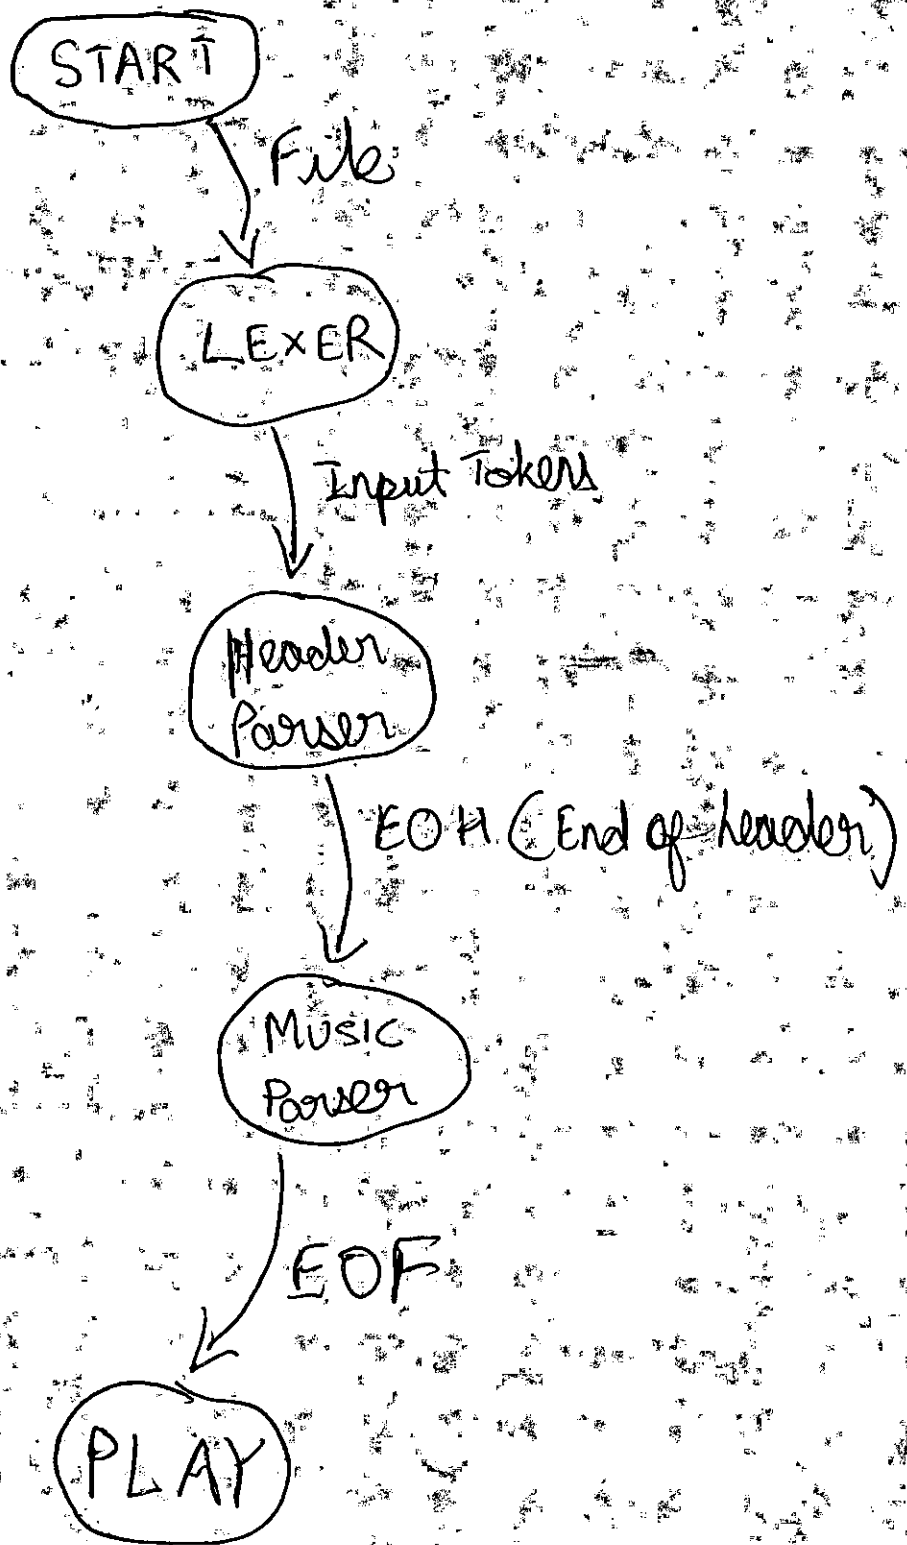 START
File
LEXER
Input Tokens
Header
Parser
EOH (End of header)
MUSIC
Parser
EOF
PLAY